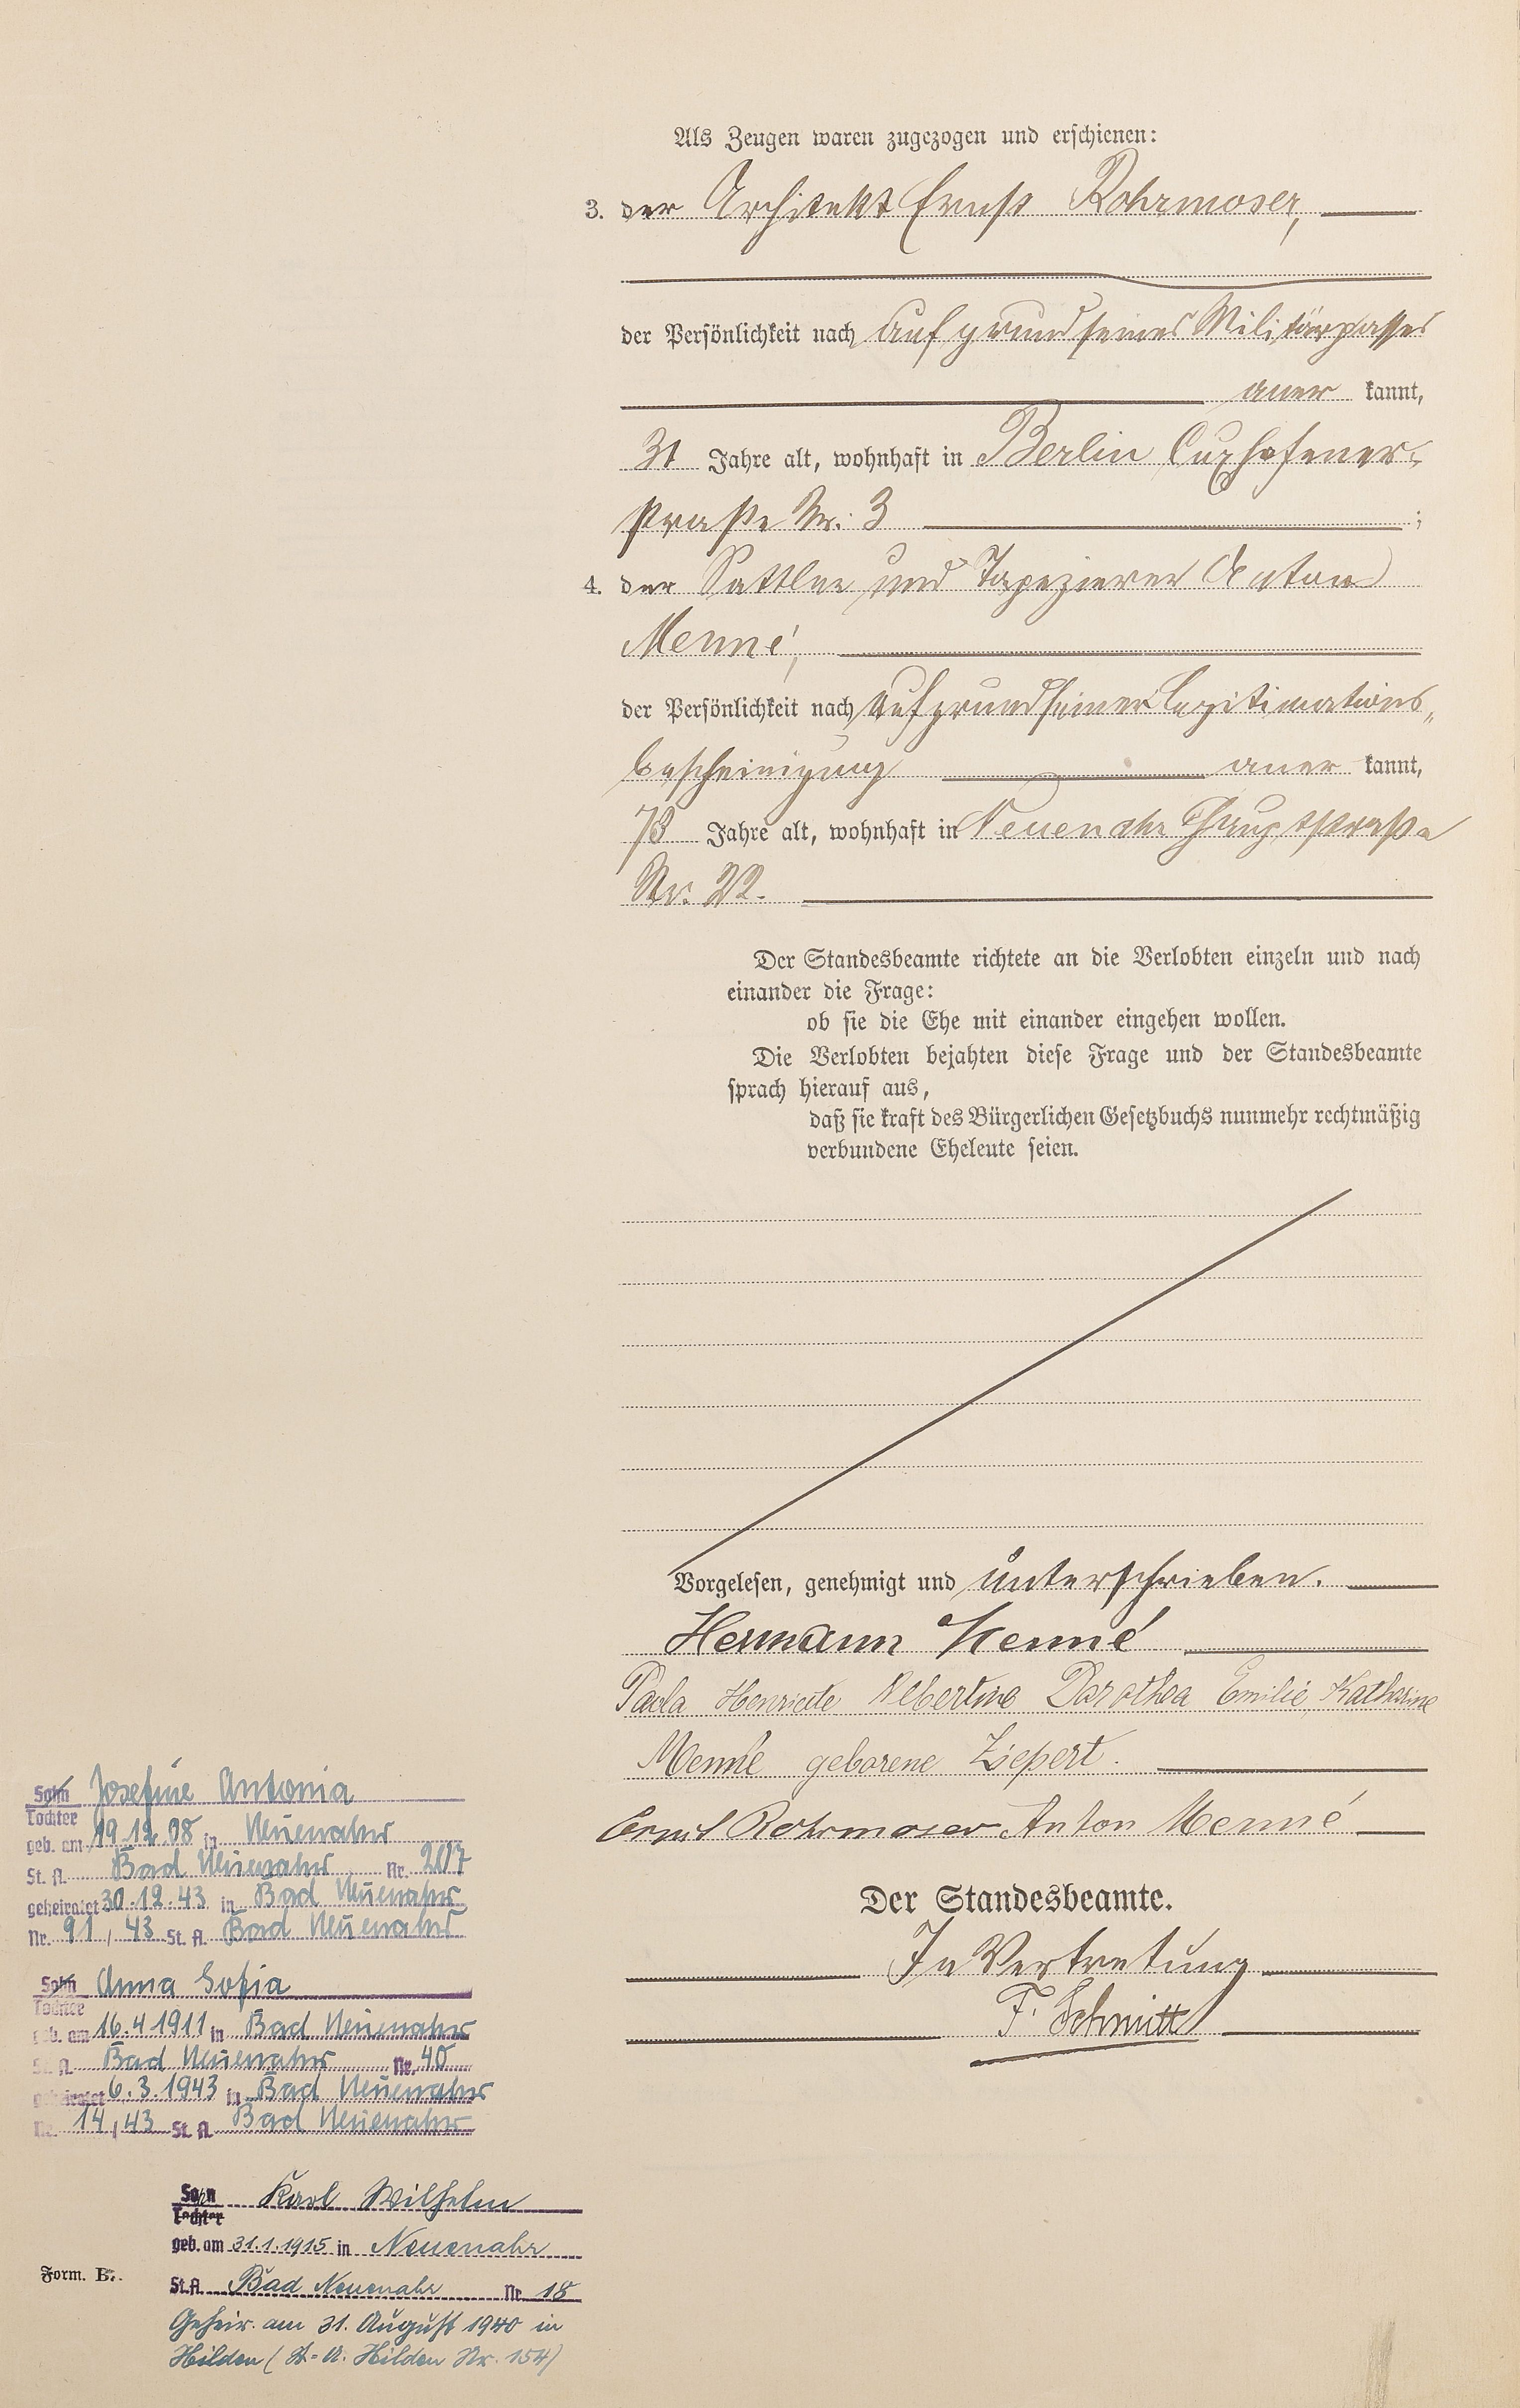 Als Zeugen waren zugezogen und erschienen:
3. der Architekt Ernst Rohrmoser,
der Persönlichkeit nach auf grund seines Militärpasses
aner kannt,
31 Jahre alt, wohnhaft in Berlin Cuxhafener-
straße Nr. 3 ;
4. der Sattler und Tapezierer Anton
Menné,
der Persönlichkeit nach auf grund seiner Legitimations„
bescheinigung aner kannt,
73 Jahre alt, wohnhaft in Neuenahr Hauptstraße
Nr. 22.
Der Standesbeamte richtete an die Verlobten einzeln und nach
einander die Frage:
ob sie die Ehe mit einander eingehen wollen.
Die Verlobten bejahten diese Frage und der Standesbeamte
sprach hierauf aus,
daß sie kraft des Bürgerlichen Gesetzbuchs nunmehr rechtmäßig
verbundene Eheleute seien.
Vorgelesen, genehmigt und unterschrieben.
Hermann Menné
Paula Henriette Albertine Dorothea Emilie Katharine
Menné geborene Ziepert.
Ernst Rohrmoser Anton Menné
Der Standesbeamte.
In Vertretung
F. Schmitt
Sohn Josefine Antonia
Tochter
geb. am 19.12.08 in Neuenahr
St. A. Bad Neuenahr Nr. 207
geheiratet 30.12.43 in Bad Neuenahr
Nr. 91 / 43 St. A. Bad Neuenahr
Sohn Anna Sofia
Tochter
geb. am 16.4.1911 in Bad Neuenahr
St. A. Bad Neuenahr Nr. 40
geheiratet 6.3.1943 in Bad Neuenahr
Nr. 14 / 43 St. A. Bad Neuenahr
Sohn Karl Wilhelm
Tochter
geb. am 31.1.1915 in Neuenahr
St. A. Bad Neuenahr Nr. 18
Geheir. am 31. August 1940 in
Hilden (St=A. Hilden Nr. 154)
Form. B.